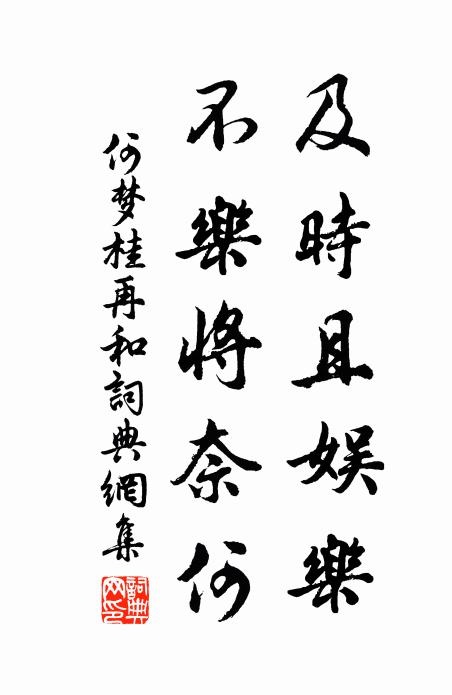 及時且娛樂
不樂將奈何
何梦桂再和詞典網集
詞典网印